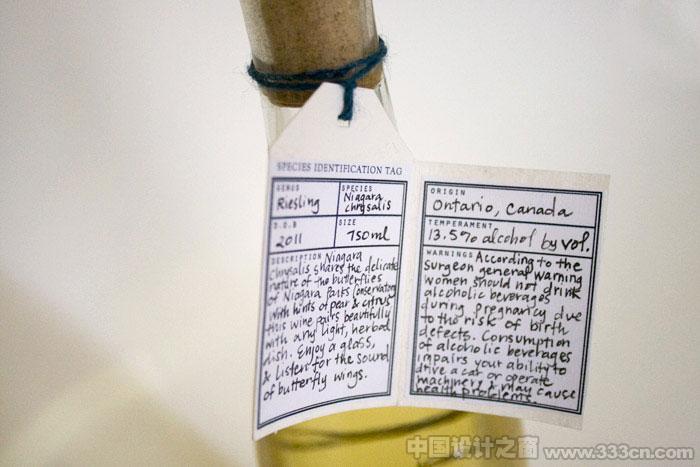 SPECIES IDENTIFICATION TAG
GENUS
Riesling
SPECIES
Niagara
chrysalis
D.O.B
2011
SIZE
750ml
DESCRIPTION Niagara
Chrysalis shares the delicate
nature of the butterflies
of Niagara Parks Conservatory
With hints of pear & citrus
this wine pairs beautifully
with any light, herbal
dish. Enjoy a glass,
& listen for the sound
of butterfly wings.
ORIGIN
Ontario, Canada
TEMPERAMENT
13.5% alcohol by vol.
WARNINGS According to the
Surgeon general warning
women should not drink
alcoholic beverages
during pregnancy due
to the risk of birth
defects. Consumption
of alcoholic beverages
impairs your ability to
drive a car or operate
machinery & may cause
health problems.
中国设计之窗 www.333cn.com